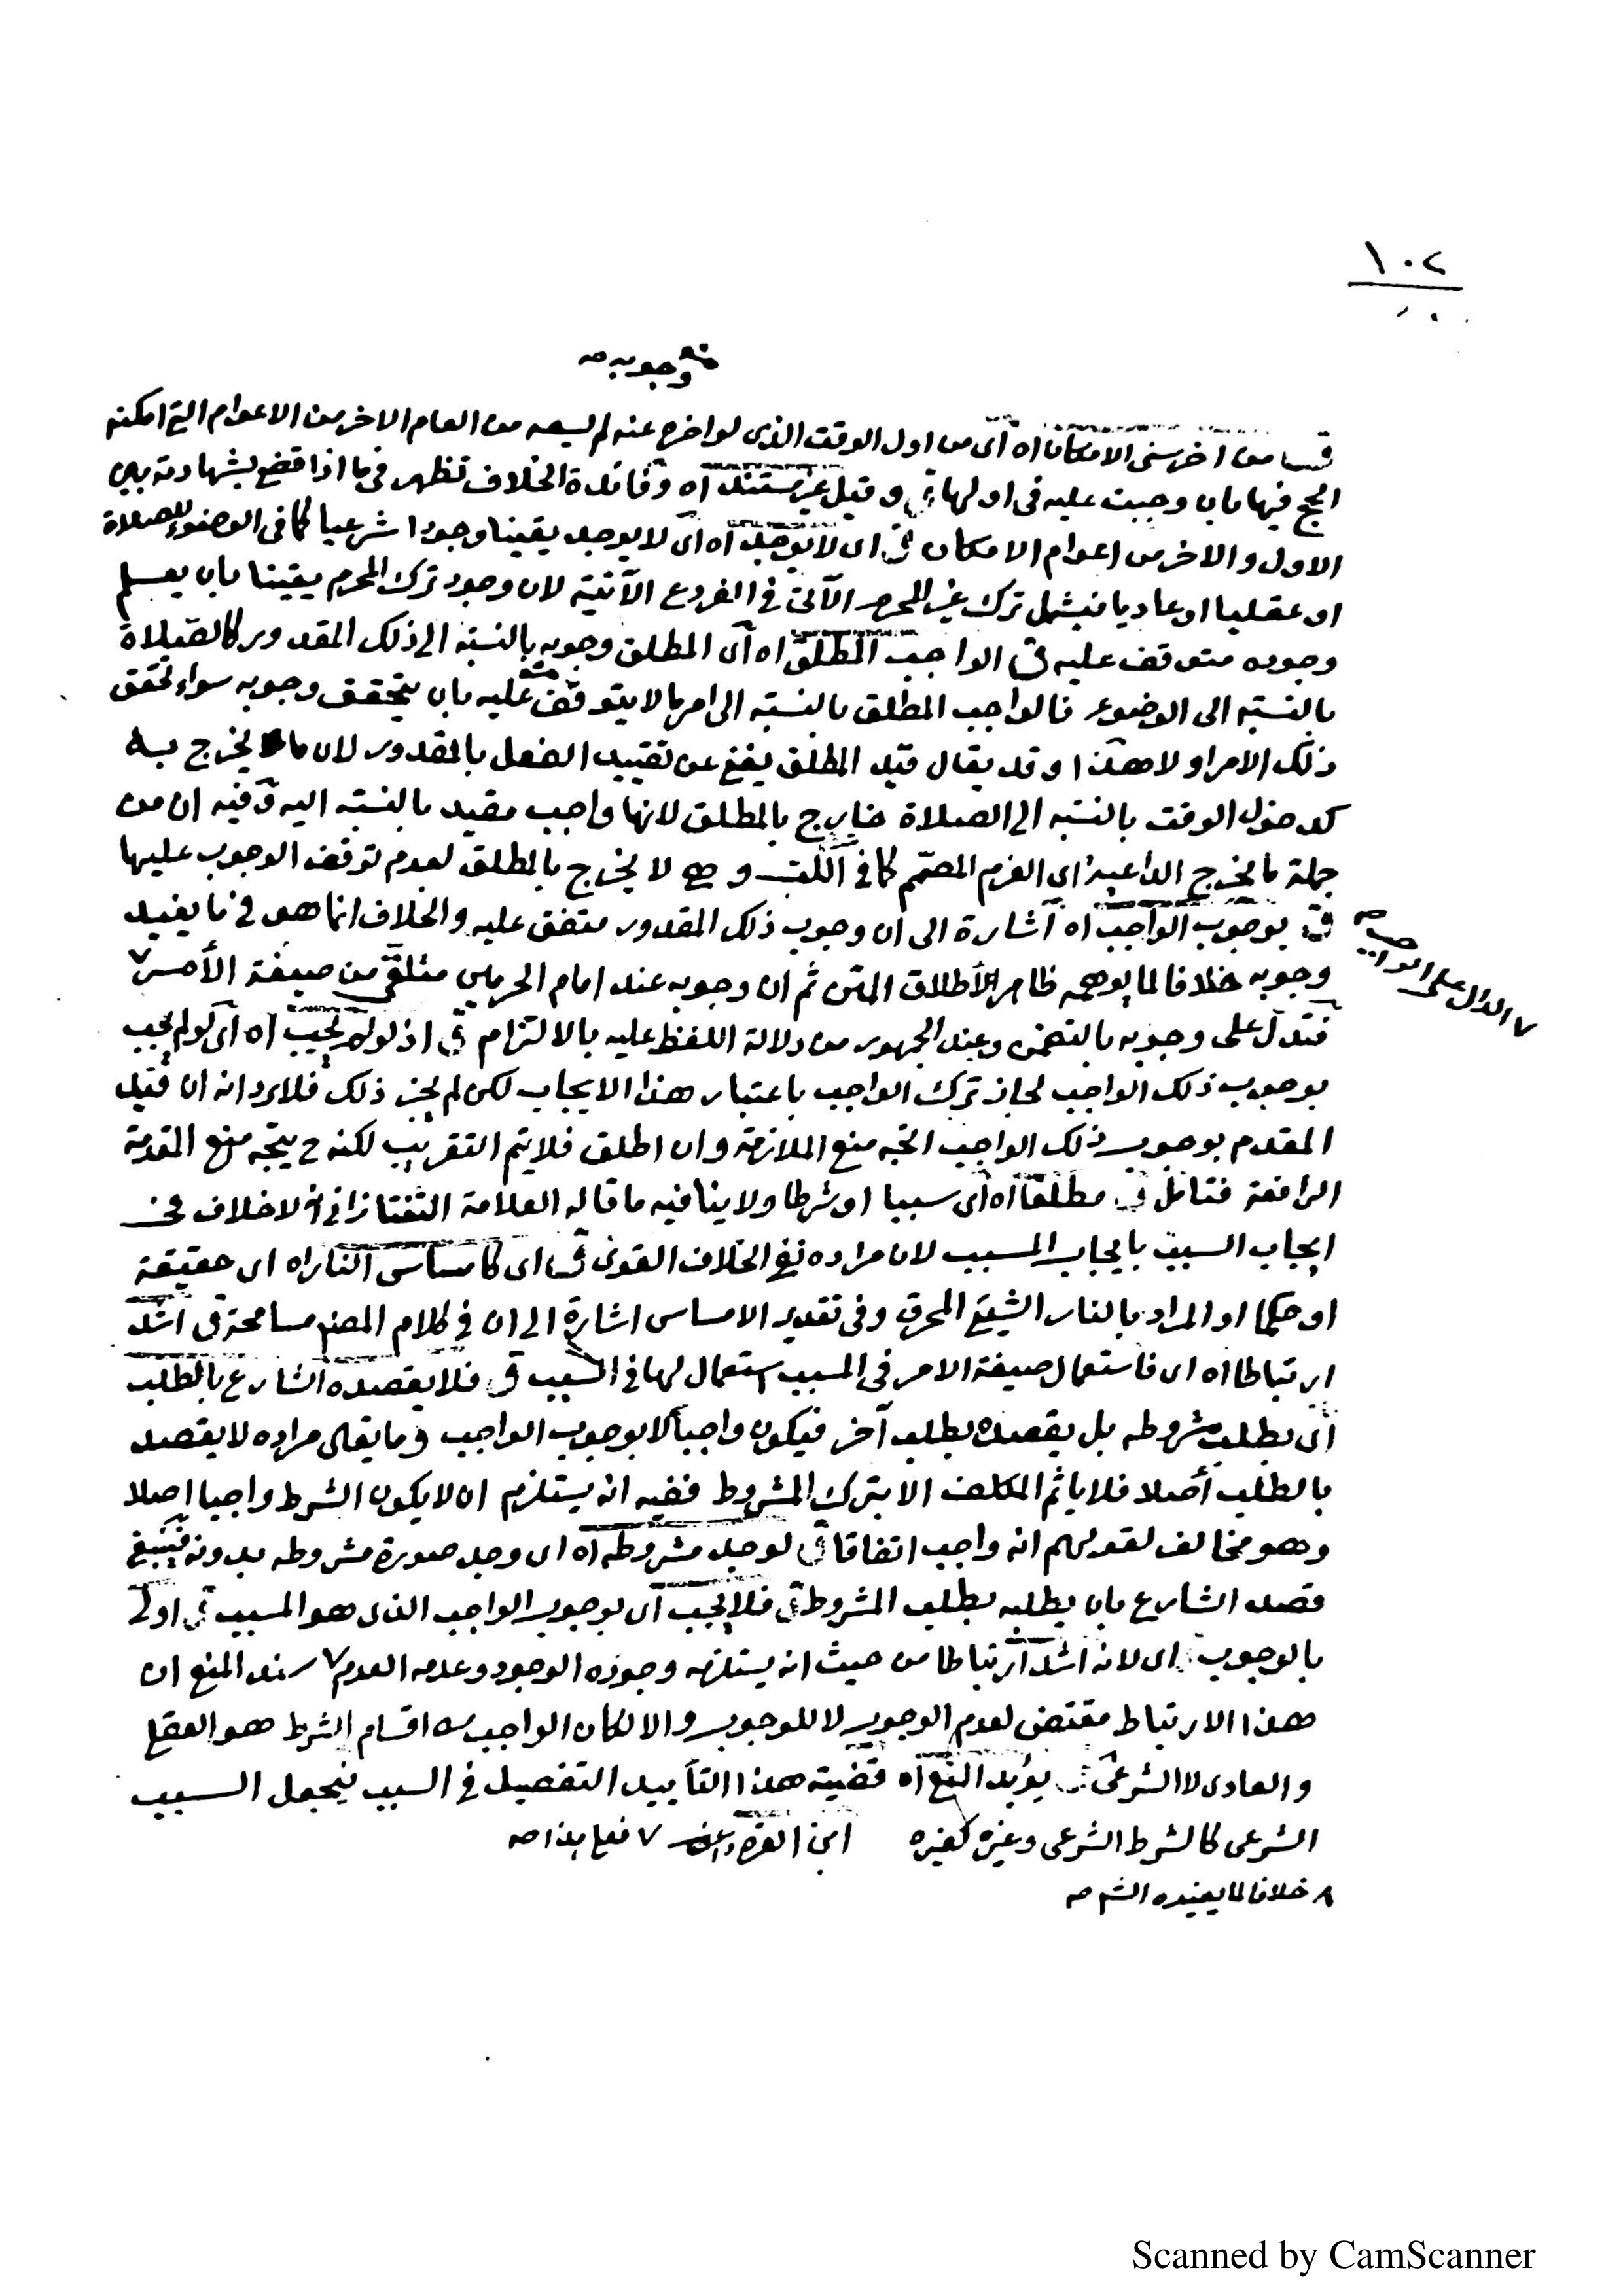 ١٠٢
وجوبه صه
ق من اخر سنى الامكان اه اى من اول الوقت الذى لو اخر عنه لم يسعه من العام الاخر من الاعوام التى امكنه
الحج فيها بان وجبت عليه فى اولها ق وقيل غير مستند اه وفائدة الخلاف تظهر فى ما اذا قضى بشهادته بين
الاول والاخر من اعوام الامكان ق اى لا يوجد اه اى لا يوجد يقينا وجودا شرعيا كما فى الوضوء للصلاة
او عقليا او عاديا فيشمل ترك غير المحرم الآتى فى الفروع الآتية لان وجود ترك المحرم يقينا بان يعلم
وجوده متوقف عليه ق الواجب المطلق اه اى المطلق وجوبه بالنسبة الى ذلك المقدور كالصلاة
بالنسبة الى الوضوء فالواجب المطلق بالنسبة الى امر ما لا يتوقف عليه بان يتحقق وجوبه سواء تحقق
ذلك الامر او لا هذا وقد يقال قيد المطلق يغنى عن تقييد الفعل بالمقدور لان ما يخرج به
كدخول الوقت بالنسبة الى الصلاة خارج بالمطلق لانها واجب مقيد بالنسبة اليه وفيه ان من
جملة ما يخرج الداعية اى العزم المصمم كما فى وهو لا يخرج بالمطلق لعدم توقف الوجوب عليها
ق بوجوب الواجب اه اشارة الى ان وجوب ذلك المقدور متفق عليه والخلاف انما هو فى ما يفيد
٧ الدال على الواجب صه
وجوبه خلافا لما يوهمه ظاهر الأطلاق المتن ثم ان وجوبه عند امام الحرمين متلقى من صيغة الأمر ٧
فتدل على وجوبه بالتضمن وعند الجمهور من دلالة اللفظ عليه بالالتزام ق اذ لو لم يجب اه اى لو لم يجب
بوجوب ذلك الواجب لجاز ترك الواجب باعتبار هذا الايجاب لكن لم يجز ذلك فلا يرد انه ان قيد
المقدم بوجوب ذلك الواجب اتجه منع الملازمة وان اطلق فلا يتم التقريب لكنه ح يتجه منع المقدمة
الرافعة فتامل ق مطلقا اه اى سببا او شرطا ولا ينافيه ما قاله العلامة التفتازانى لا خلاف فى
ايجاب السبب بايجاب المسبب لان مراده نفى الخلاف القوى ق اى كامساس النار اه اى حقيقة
او حكما او المراد بالنار الشيئ المحرق وفى تقدير الامساس اشارة الى ان فى كلام المصنف مسامحة ق اشد
ارتباطا اه اى فاستعمال صيغة الامر فى المسبب استعمال لها فى السبب ق فلا يقصده الشارع بالطلب
اى بطلب مشروطه بل يقصده بطلب آخر فيكون واجبا لا بوجوب الواجب وما يقال مراده لا يقصد
بالطلب أصلا فلا يأثم المكلف الا بترك المشروط ففيه انه يستلزم ان لا يكون الشرط واجبا اصلا
وهو مخالف لقولهم انه واجب اتفاقا ق لوجد مشروطه اه اى وجد صورة مشروطه بدونه فينبغى
قصد الشارع بان يطلبه بطلب المشروط ق فلا يجب اى بوجوب الواجب الذى هو المسبب ق اولى
بالوجوب اى لانه اشد ارتباطا من حيث انه يستلزم وجوده الوجود وعدمه العدم ٧ سند المنع ان
هذا الارتباط مقتض لعدم الوجوب لا للوجوب والا لكان الواجب من اقسام الشرط هو العقلى
والعادى لا الشرعى ق يؤيد المنع اه قضية هذا التأييد التفصيل فى السبب فيجعل السبب
الشرعى كالشرط الشرعى وغيره كغيره ابن القره داغى ٧ فعلى هذا صه
٨ خلافا لما يفيده الشـ صه
Scanned by CamScanner